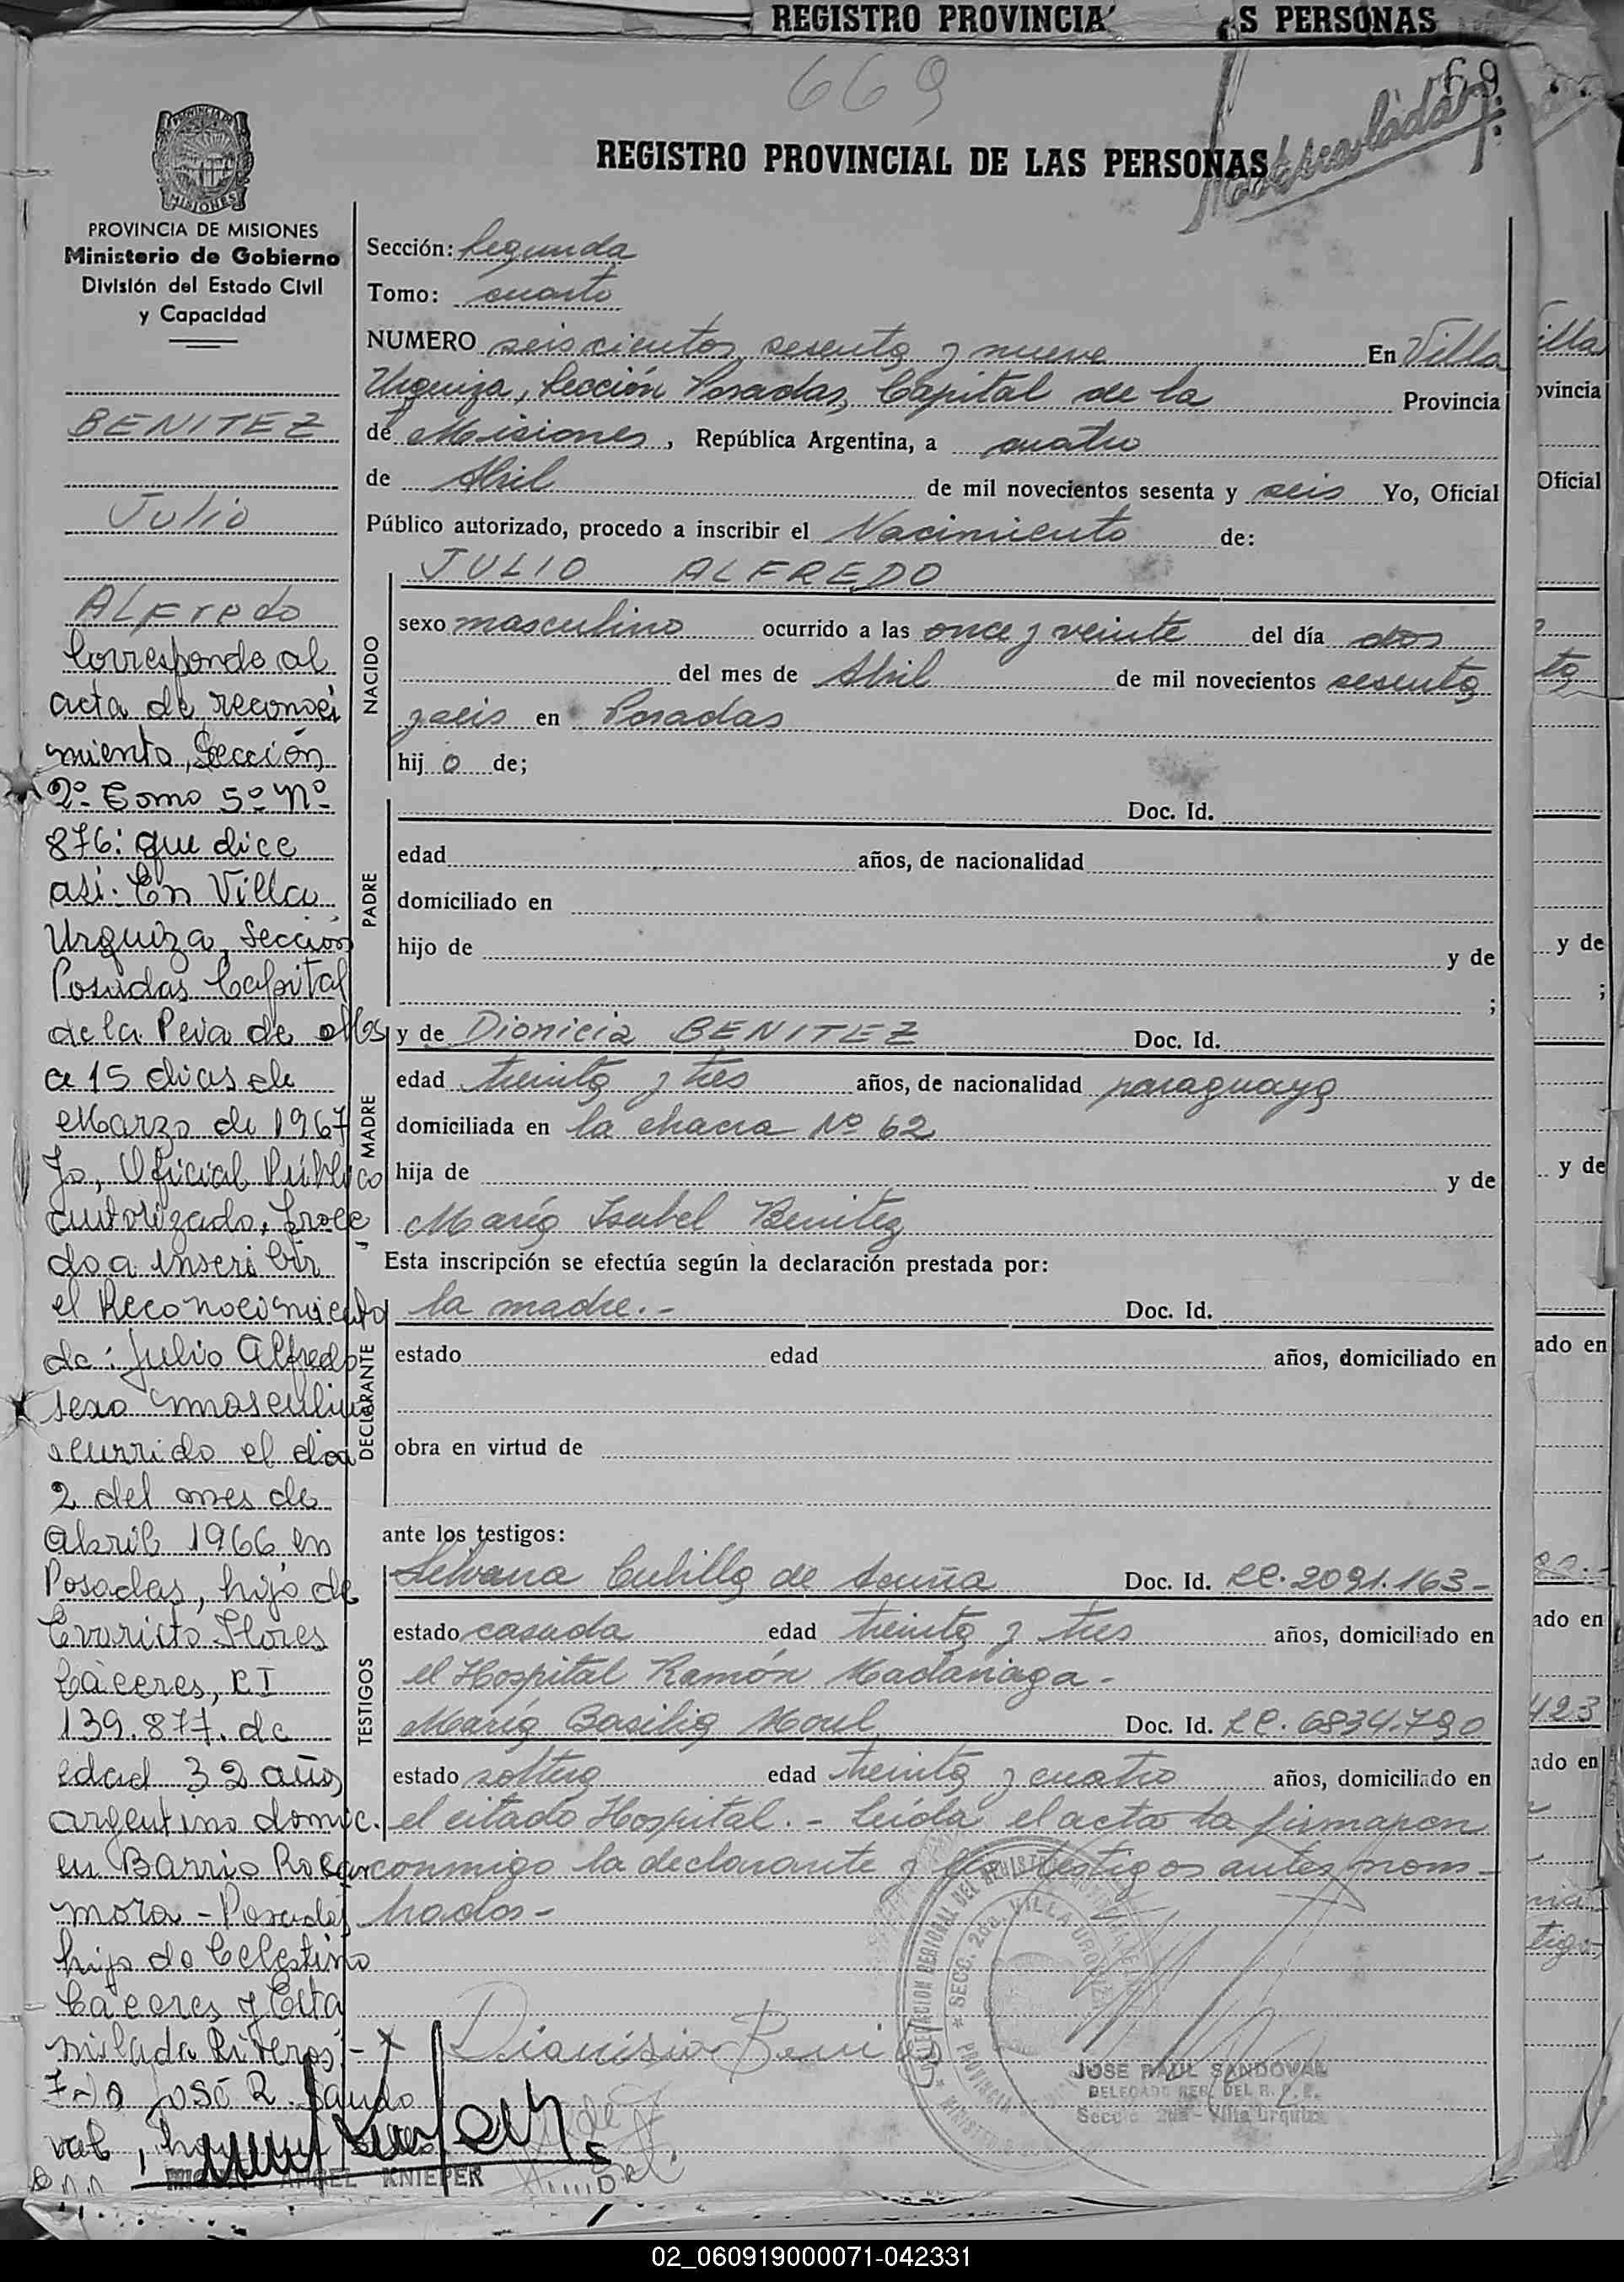 REGISTRO PROVINCIA
S PERSONAS
669
69
REGISTRO PROVINCIAL DE LAS PERSONAS
PROVINCIA DE MISIONES
Ministerio de Gobierno
División del Estado Civil
y Capacidad
BENITEZ
Julio
ALFredo
Corresponde al
acta de reconoci
miento, Sección
2º Tomo 5º Nº
876: que dice
asi: En Villa
Urquiza, Sección
Posadas Capital
de la Pcia de Mos
a 15 dias de
Marzo de 1967
Yo, Oficial Público
autorizado, proce
do a inscribir
el Reconocimiento
de: Julio Alfredo
sexo masculino
ocurrido el dia
2 del mes de
Abril 1966 en
Posadas, hijo de
Evaristo Flores
Cáceres, CI
139.877. de
edad 32 años
argentino domic.
en Barrio Roca
mora - Posadas
hijo de Celestino
Cáceres y
Riveros.-
José R. Sando
val
ANGEL KNIEPER
Sección: Segunda
Tomo: cuarto
NUMERO seiscientos sesenta y nueve En Villa
Urquiza, Sección Posadas, Capital de la Provincia
de Misiones, República Argentina, a cuatro
de Abril de mil novecientos sesenta y seis Yo, Oficial
Público autorizado, procedo a inscribir el Nacimiento de:
JULIO ALFREDO
NACIDO
sexo masculino ocurrido a las once y veinte del día dos
del mes de Abril de mil novecientos sesenta
y seis en Posadas
hij o de;
PADRE
Doc. Id.
edad años, de nacionalidad
domiciliado en
hijo de y de
;
MADRE
y de Dionicia BENITEZ Doc. Id.
edad treinta y tres años, de nacionalidad paraguaya
domiciliada en la chacra Nº 62
hija de y de
María Isabel Benitez
Esta inscripción se efectúa según la declaración prestada por:
DECLARANTE
la madre.- Doc. Id.
estado edad años, domiciliado en
obra en virtud de
ante los testigos:
TESTIGOS
Silvana Cubilla de Acuña Doc. Id. LC. 2091.163-
estado casada edad treinta y tres años, domiciliado en
el Hospital Ramón Madariaga-
María Basilia Doc. Id. LC. 6834.790
estado soltera edad treinta y cuatro años, domiciliado en
el citado Hospital.- Leída el acta la firmaron
conmigo la declarante y los testigos antes nom-
brados-
x Dionisia Beni
SECC. 2da. VILLA URQUIZA
JOSE RAUL SANDOVAL
DELEGADO REG. DEL R. P. E.
Secció 2da - Villa Urquiza
illa
ovincia
Oficial
y de
;
y de
ado en
ado en
423
ado en
02_060919000071-042331